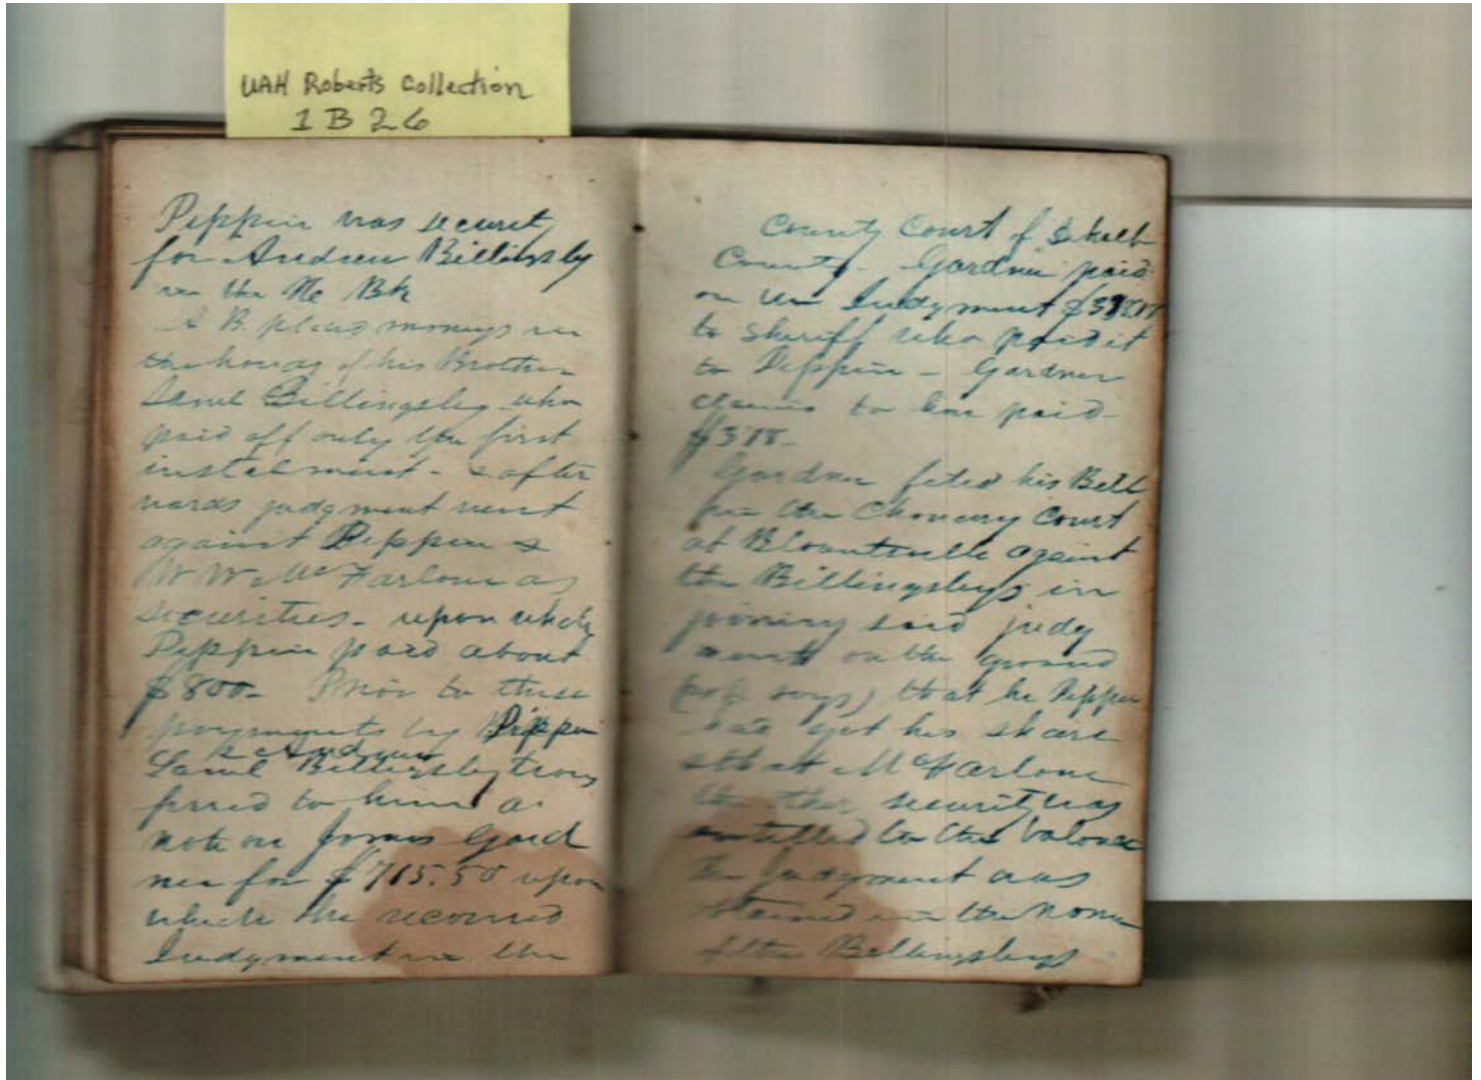 UAH Roberts Collection
1 B 26
Peppin was securit
for Andrew Billingsly
in the
A B. placed moneys in
the hands of his Brother
Saml Billingsley who
paid off only the first
instalment - & after
wards judgment went
against Peppin &
W W McFarlane as
securities - upon which
Peppin paid about
$800- Prior to these
payments by Peppin
& Andrew
Saml Billingsley trans
ferred to him a
note on James Gard
ner for $715.50 upon
which he recovered
Judgment in the
County Court of
County - Gardner paid
on the Judgment
to Sheriff who paid it
to Peppin - Gardner
claims to have paid
Gardner filed his Bill
in the Chancery Court
at Blountsville against
the Billingsleys in
joining said judg
ment on the ground
(as says) that he Peppin
had got his share
& that McFarlane
the other security was
entitled to the balance
The Judgment was
obtained in the name
of the Billingsleys